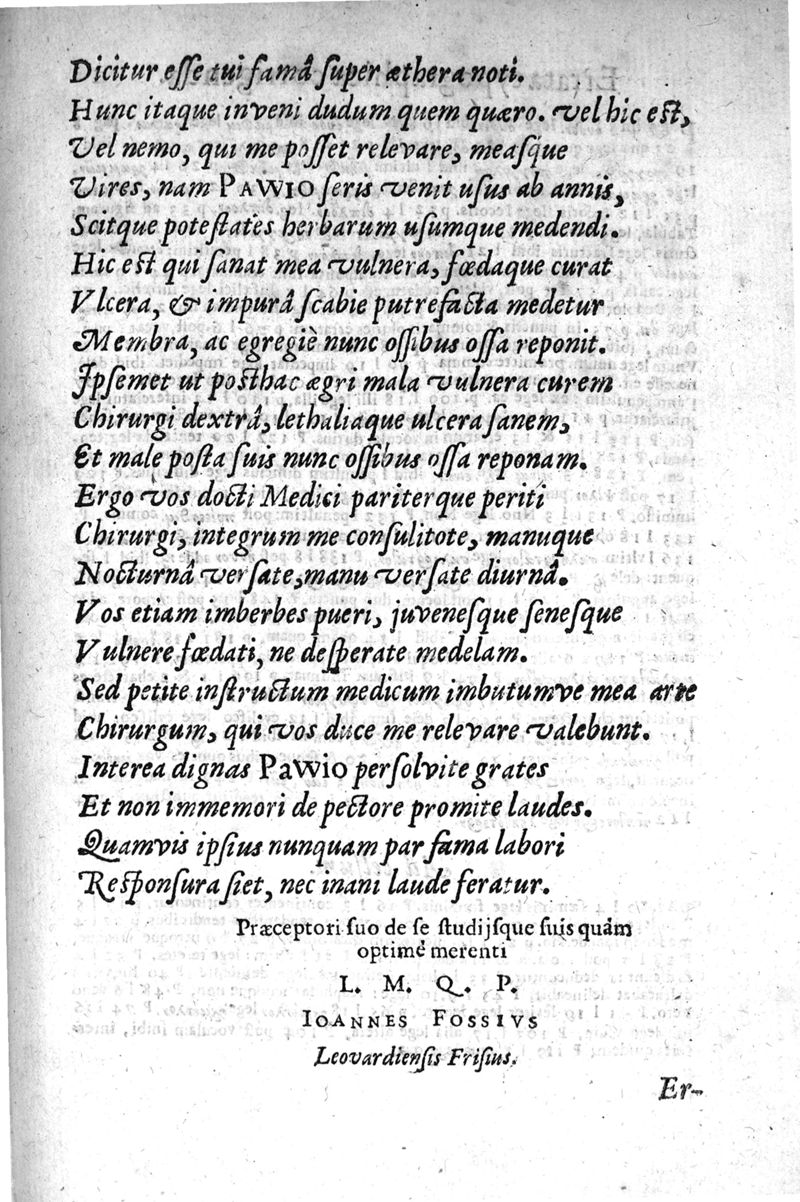 Dicitur esse tui famâ super æthera noti.
Hunc itaque inveni dudum quem quæro. vel hic est,
Vel nemo, qui me posset relevare, measque
Vires, nam PAWIO seris venit usus ab annis,
Scitque potestates herbarum usumque medendi.
Hic est qui sanat mea vulnera, fœdaque curat
Vlcera, & impurâ scabie putrefacta medetur
Membra, ac egregiè nunc ossibus ossa reponit.
Ipsemet ut posthac ægri mala vulnera curem
Chirurgi dextrâ, lethaliaque ulcera sanem,
Et male posta suis nunc ossibus ossa reponam.
Ergo vos docti Medici pariterque periti
Chirurgi, integrum me consulitote, manuque
Nocturnâ versate, manu versate diurnâ.
Vos etiam imberbes pueri, juvenesque senesque
Vulnere fœdati, ne desperate medelam.
Sed petite instructum medicum imbutumve mea arte
Chirurgum, qui vos duce me relevare valebunt.
Interea dignas PAWIO persolvite grates
Et non immemori de pectore promite laudes.
Quamvis ipsius nunquam par fama labori
Responsura siet, nec inani laude feratur.
Præceptori suo de se studijsque suis quàm
optimè merenti
L. M. Q. P.
IOANNES FOSSIVS
Leovardiensis Frisius.
Er-